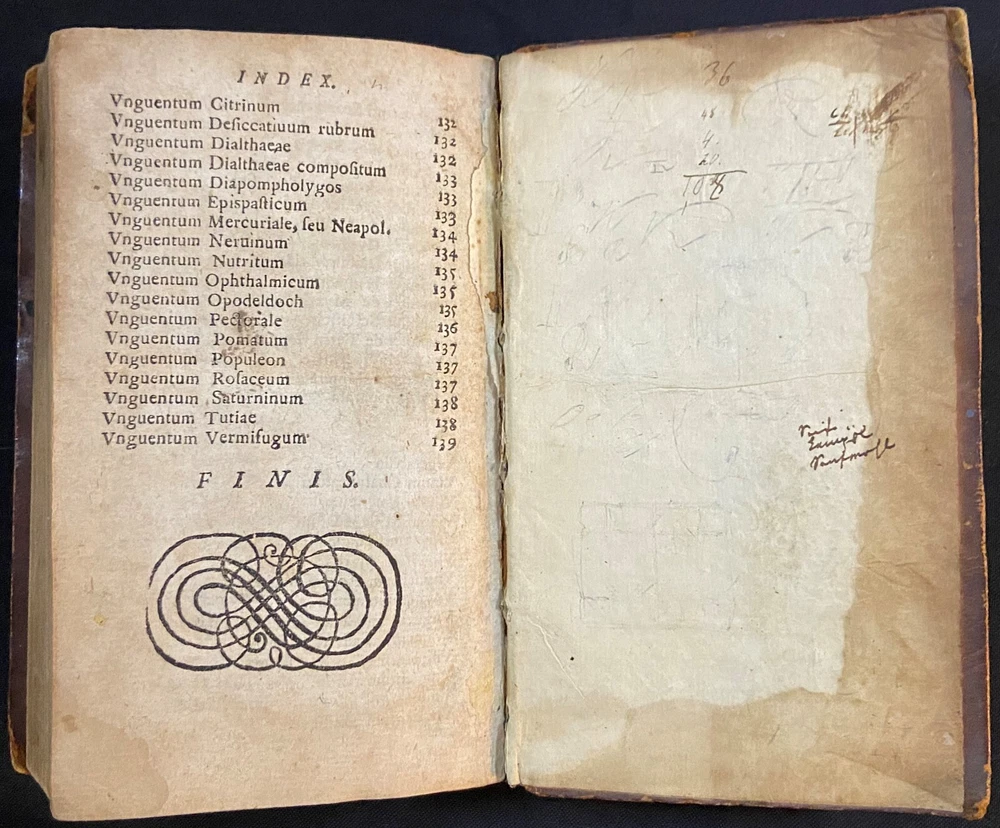 INDEX.
Vnguentum Citrinum 132
Vnguentum Deſiccatiuum rubrum 132
Vnguentum Dialthaeae 132
Vnguentum Dialthaeae compoſitum 133
Vnguentum Diapompholygos 133
Vnguentum Epiſpaſticum 133
Vnguentum Mercuriale, ſeu Neapol. 134
Vnguentum Neruinum 134
Vnguentum Nutritum 135
Vnguentum Ophthalmicum 135
Vnguentum Opodeldoch 135
Vnguentum Pectorale 136
Vnguentum Pomatum 137
Vnguentum Populeon 137
Vnguentum Roſaceum 137
Vnguentum Saturninum 138
Vnguentum Tutiae 138
Vnguentum Vermifugum 139
FINIS.
36
48
4.
20.
108